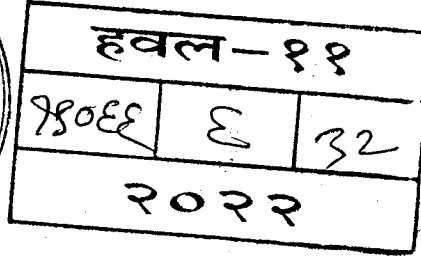 हवल-११
१५०६६ ६ ३२
२०२२